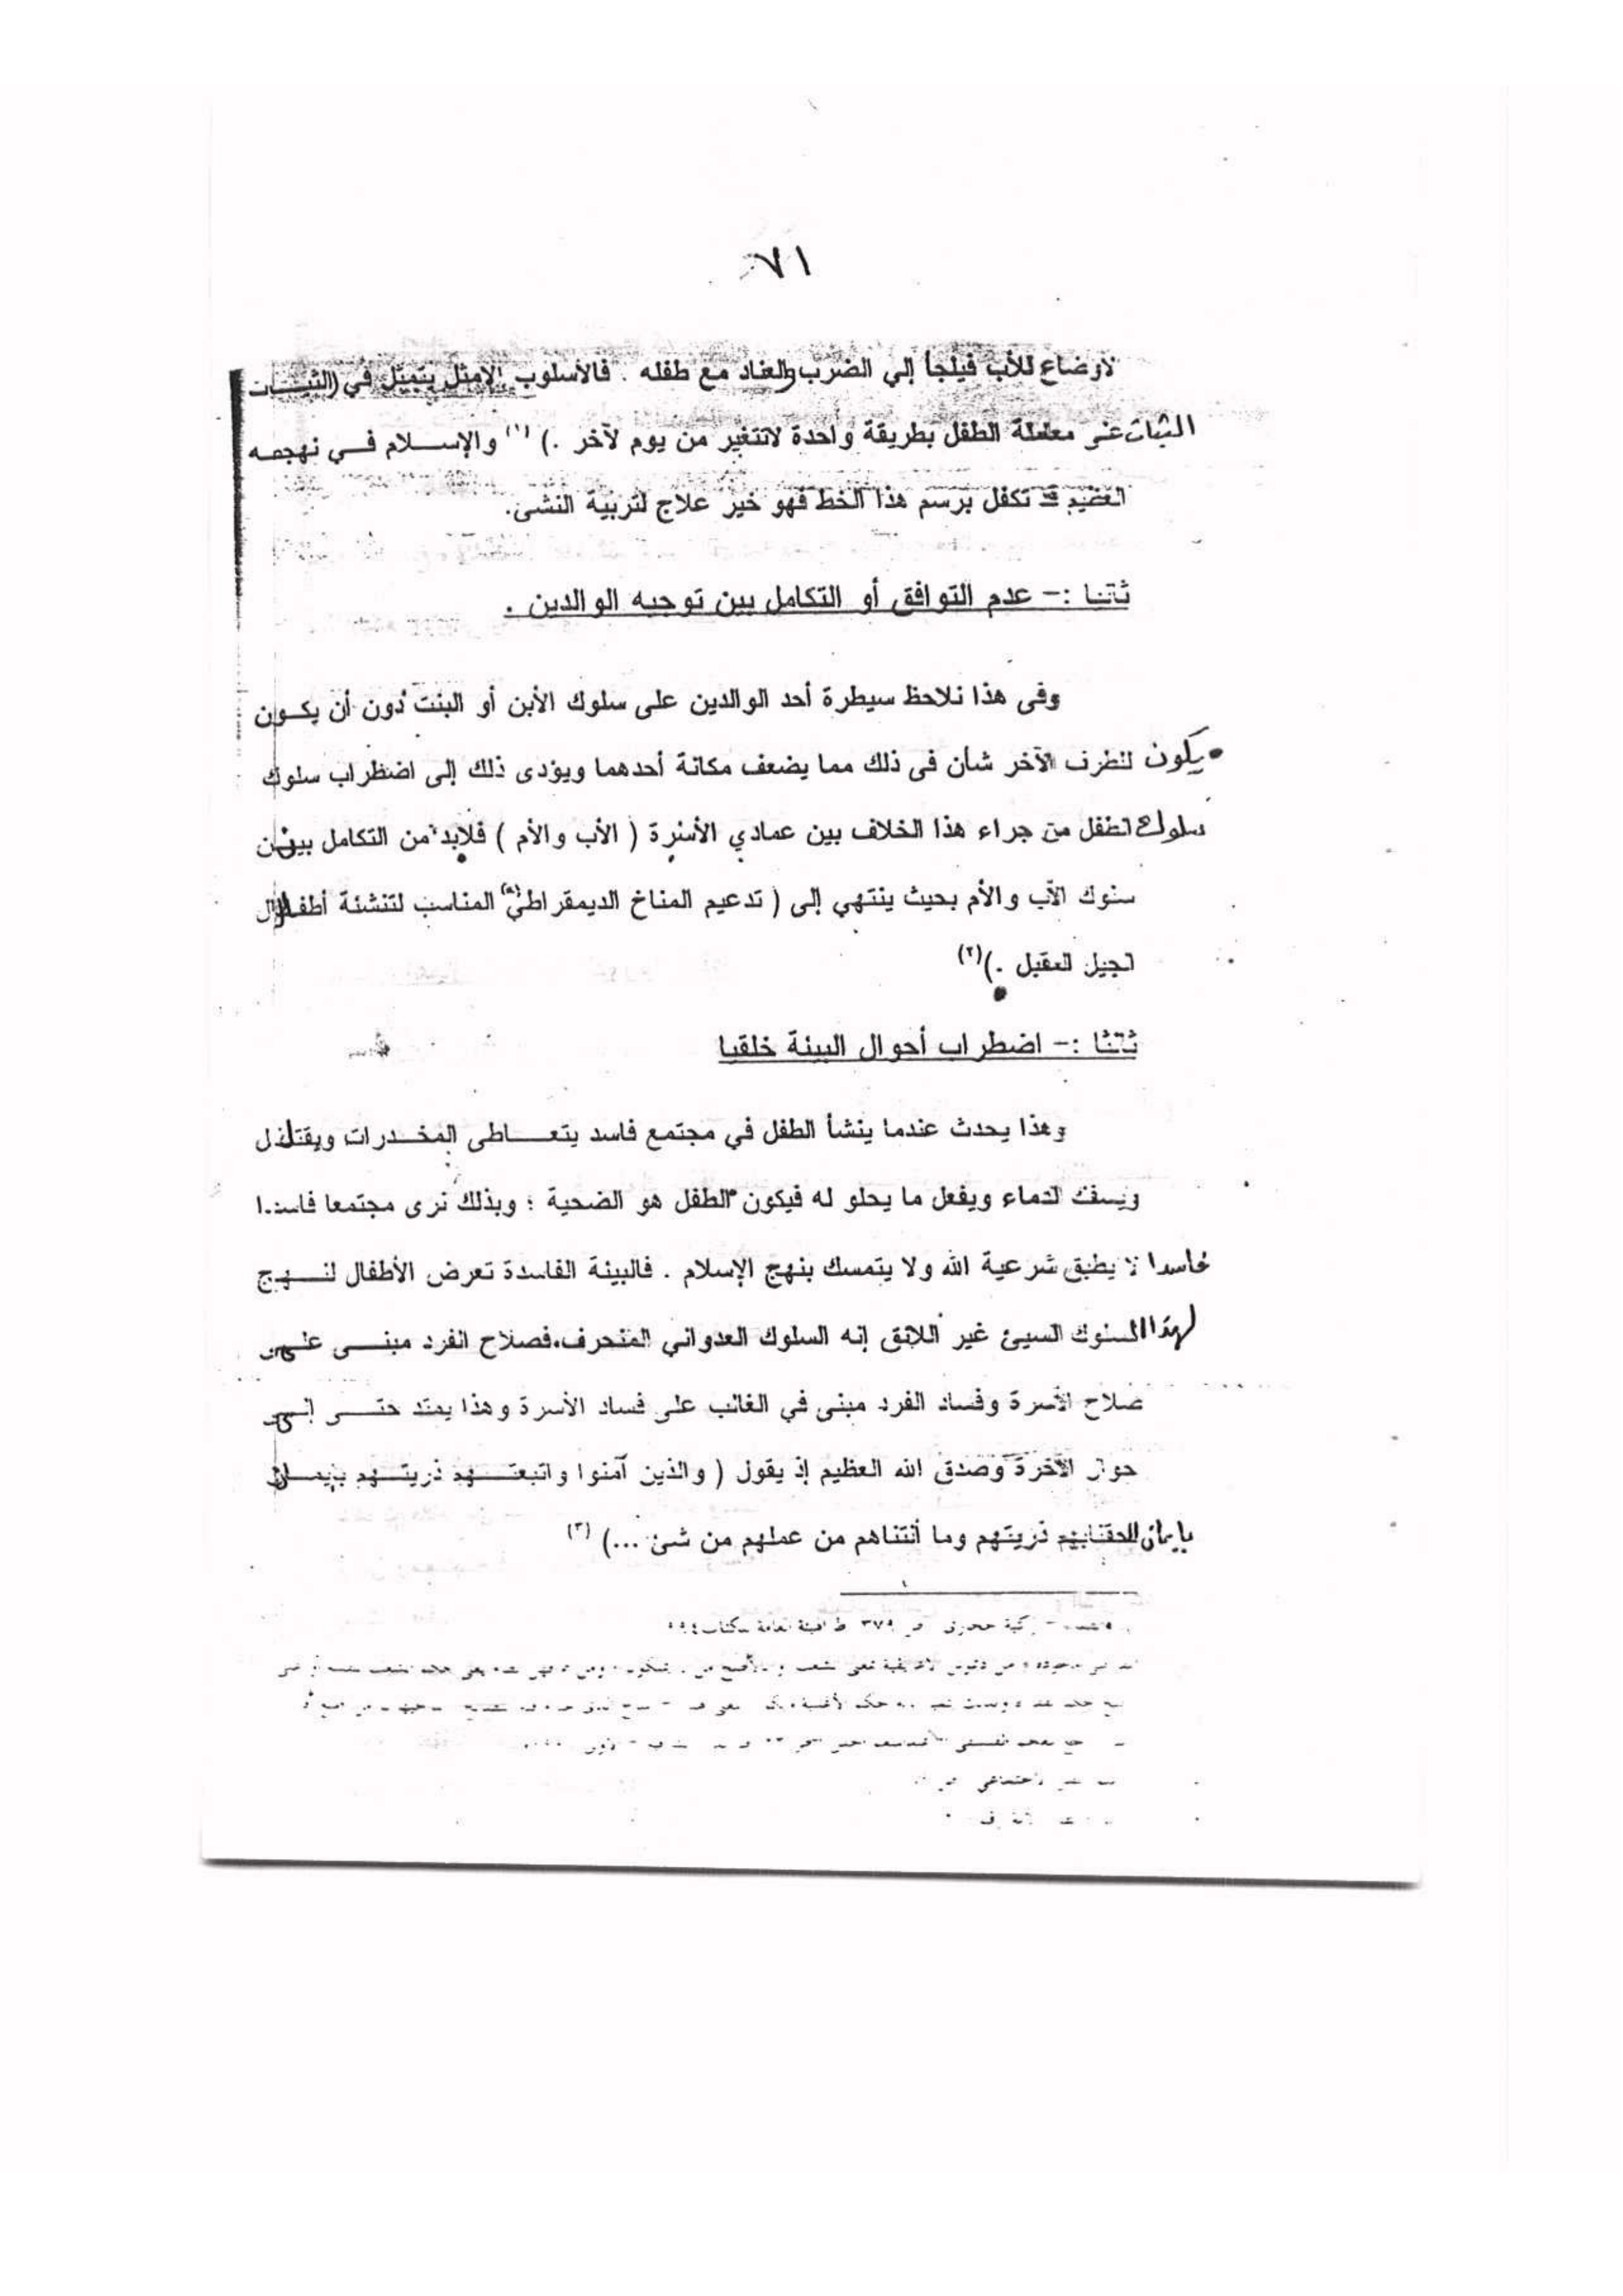 ٧١
لاوضاع للأب فيلجأ إلي الضرب والعناد مع طفله . فالأسلوب الأمثل يتمثل في (الثبات
الثبات على معاملة الطفل بطريقة واحدة لاتتغير من يوم لآخر .) (١) والإسلام في نهجه
العظيم قد تكفل برسم هذا الخط فهو خير علاج لتربية النشئ.
ثانيا :- عدم التوافق أو التكامل بين توجيه الوالدين .
وفى هذا نلاحظ سيطرة أحد الوالدين على سلوك الأبن أو البنت دون أن يكون
يكون للطرف الآخر شأن فى ذلك مما يضعف مكانة أحدهما ويؤدى ذلك إلى اضطراب سلوك
سلوك الطفل من جراء هذا الخلاف بين عمادي الأسرة ( الأب والأم ) فلابد من التكامل بين
سلوك الأب والأم بحيث ينتهي إلى ( تدعيم المناخ الديمقراطي(*) المناسب لتنشئة أطفال
الجيل المقبل .)(٢)
ثالثا :- اضطراب أحوال البيئة خلقيا
وهذا يحدث عندما ينشأ الطفل في مجتمع فاسد يتعاطى المخدرات ويقتل
ويسفك الدماء ويفعل ما يحلو له فيكون الطفل هو الضحية ؛ وبذلك نرى مجتمعا فاسدا
فاسدا لا يطبق شرعية الله ولا يتمسك بنهج الإسلام . فالبيئة الفاسدة تعرض الأطفال لنهج
لهذا السلوك السيئ غير اللائق إنه السلوك العدواني المنحرف.فصلاح الفرد مبنى على
صلاح الأسرة وفساد الفرد مبنى في الغالب على فساد الأسرة وهذا يمتد حتى إلى
الآخرة وصدق الله العظيم إذ يقول ( والذين آمنوا واتبعتهم ذريتهم بإيمان
بإيمان ألحقنا بهم ذريتهم وما ألتناهم من عملهم من شئ ...) (٣)